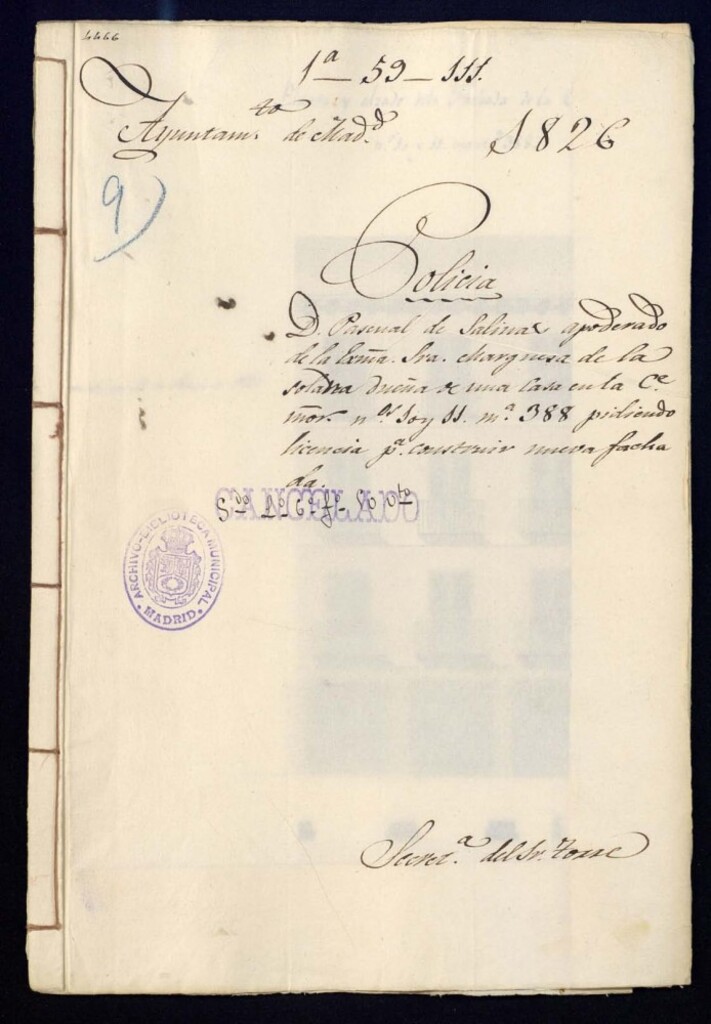 4466
1ª — 59 — 111.
Ayuntam.to de Mad.d
1826
9)
Policia
D. Pascual de Salinas apoderado
de la Exma. Sra. Marquesa de la
Solana dueña de una Casa en la C.e
mor. n.os 10 y 11. m.a 388 pidiendo
licencia p.a construir nueva facha
da.
CANCELADO
ARCHIVO-BIBLIOTECA MUNICIPAL
MADRID.
Secret.a del Sr. Torre